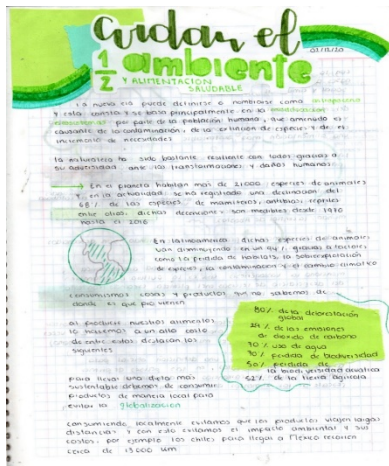 Cuidar el
02/12/20
1/2 ambiente
Y ALIMENTACION
SALUDABLE
La nueva era puede definirse o nombrarse como antropoceno
y esta consta y se basa principalmente en la
por parte de la población humana, que amenudo es
causante de la contaminación, de la extinción de especies y de el
incremento de necesidades
la naturaleza ha sido bastante resiliente con todos gracias a
su ante las transformaciones y daños humanos.
En el planeta habitan mas de 21000 especies de animales
y en la actualidad se ha registrado una declinación del
68% de las especies de mamiferos, anfibios, reptiles
entre otros, dichas son medibles desde 1970
hasta el 2016
En latinoamerica dichas especies de animales
van disminuyendo en un 94% gracias a factores
como la perdida de habitats, la sobreexplotación
de especies, la contaminación y el cambio climatico
consumismos cosas y productos que no sabemos de
donde es que provienen
al producir nuestros alimentos
lo hacemos a un alto costo
de entre estos destacan los
siguientes
80% de la deforestación
global
29% de las emisiones
de dioxido de carbono
70% uso de agua
70% perdida de biodiversidad
50% perdida de
la biodiversidad acuatica
52% de la tierra agricola
para llevar una dieta mas
sustentable debemos de consumir
productos de manera local para
evitar la globalización
consumiendo localmente evitamos que los productos viajen largas
distancias y con esto evitamos el impacto ambiental y sus
costos, por ejemplo los chiles para llegar a Mexico recorren
cerca de 13000 km